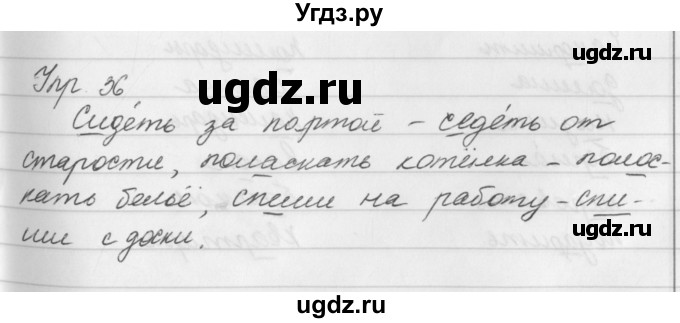 Угдз.ру
Упр. 36
ugdz.ru
ugdz.ru
Сиде́ть за партой – седе́ть от
старости, поласкать котёнка – полос-
кать бельё, спеши на работу – спи-
ши с доски.
ugdz.ru
ugdz.ru